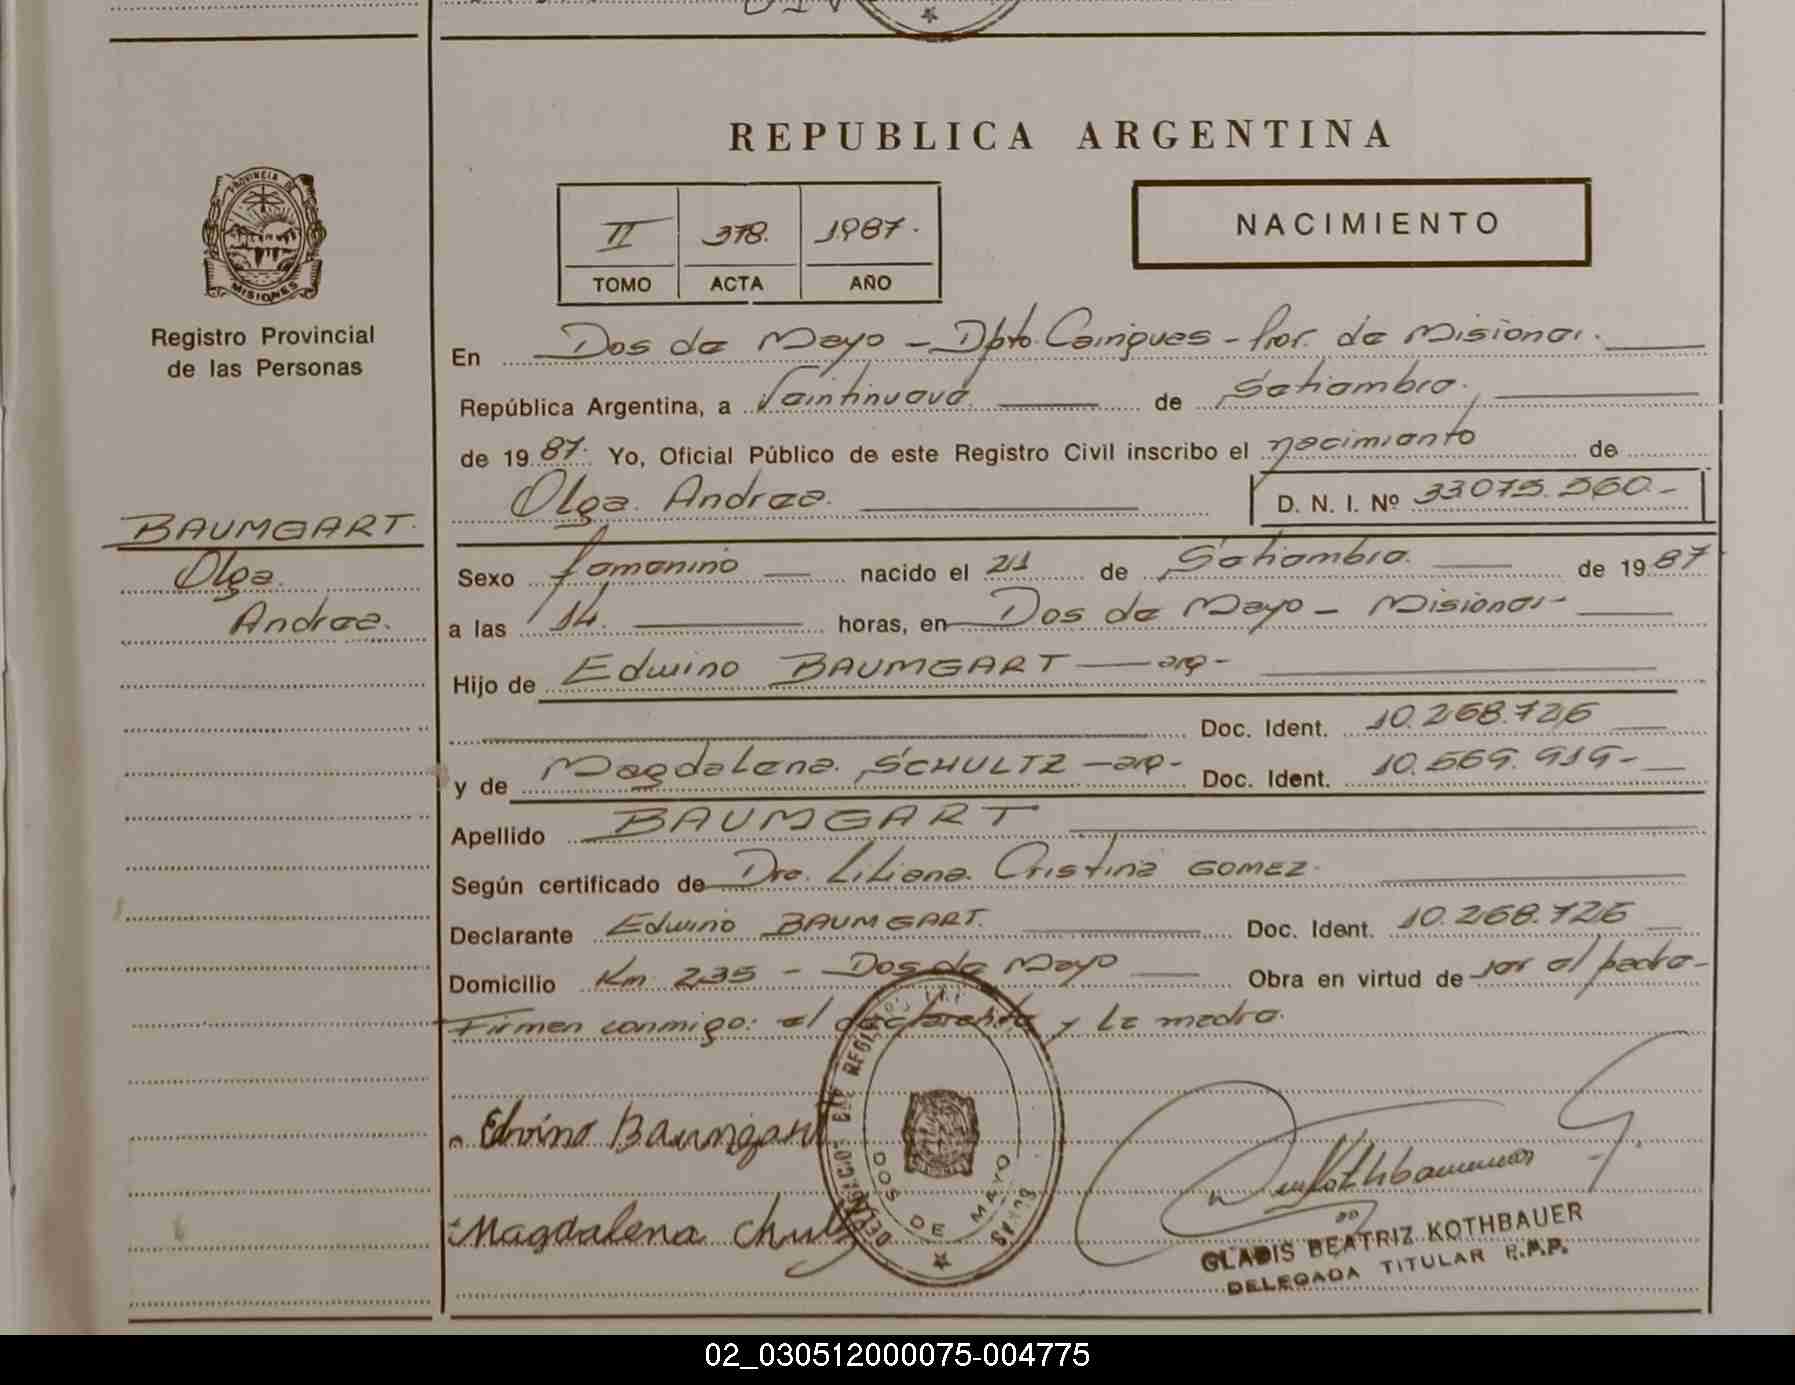 REPUBLICA ARGENTINA
PROVINCIA DE
MISIONES
Registro Provincial
de las Personas
II 378. 1987.
TOMO ACTA AÑO
NACIMIENTO
En Dos de Mayo - Dpto. Cainguas - Prov. de Misiones.
República Argentina, a Veintinueve de Setiembre.
de 1987. Yo, Oficial Público de este Registro Civil inscribo el nacimiento de
Olga Andrea.
D. N. I. Nº 33.075.560.-
BAUMGART.
Olga
Andrea.
Sexo femenino nacido el 21 de Setiembre. de 1987
a las 14. horas, en Dos de Mayo - Misiones-
Hijo de Edwino BAUMGART - arg-
Doc. Ident. 10.268.726
y de Magdalena SCHULTZ - arg- Doc. Ident. 10.569.919-
Apellido BAUMGART
Según certificado de Dra. Liliana Cristina GOMEZ.
Declarante Edwino BAUMGART. Doc. Ident. 10.268.726
Domicilio Km 235 - Dos de Mayo Obra en virtud de ser el padre-
Firman conmigo: el declarante y la madre.
Edvino Baumgart
Magdalena Chulz
DOS DE MAYO
Kothbauer
GLADIS BEATRIZ KOTHBAUER
DELEGADA TITULAR R.P.P.
02_030512000075-004775